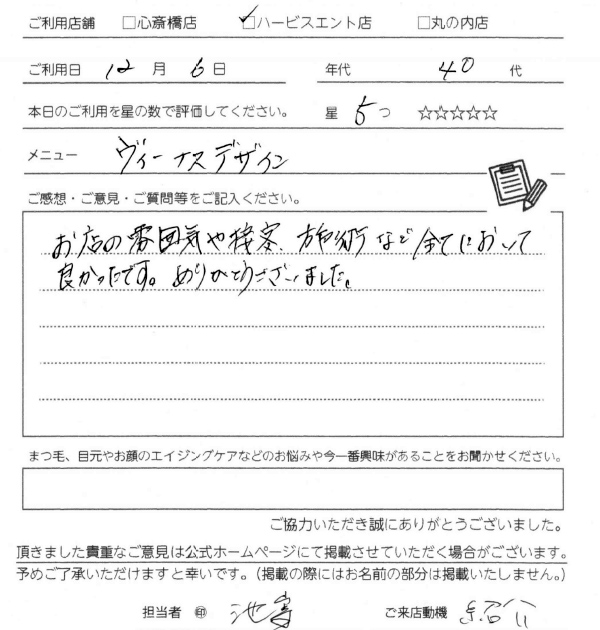 ご利用店舗 □心斎橋店 ☑ハービスエント店 □丸の内店
ご利用日 12 月 6 日 年代 40 代
本日のご利用を星の数で評価してください。 星 5 つ ☆☆☆☆☆
メニュー ヴィーナスデザイン
ご感想・ご意見・ご質問等をご記入ください。
お店の雰囲気や接客、施術など全てにおいて
良かったです。ありがとうございました。
まつ毛、目元やお顔のエイジングケアなどのお悩みや今一番興味があることをお聞かせください。
ご協力いただき誠にありがとうございました。
頂きました貴重なご意見は公式ホームページにて掲載させていただく場合がございます。
予めご了承いただけますと幸いです。（掲載の際にはお名前の部分は掲載いたしません。）
担当者 ㊞ 池 ご来店動機 紹介